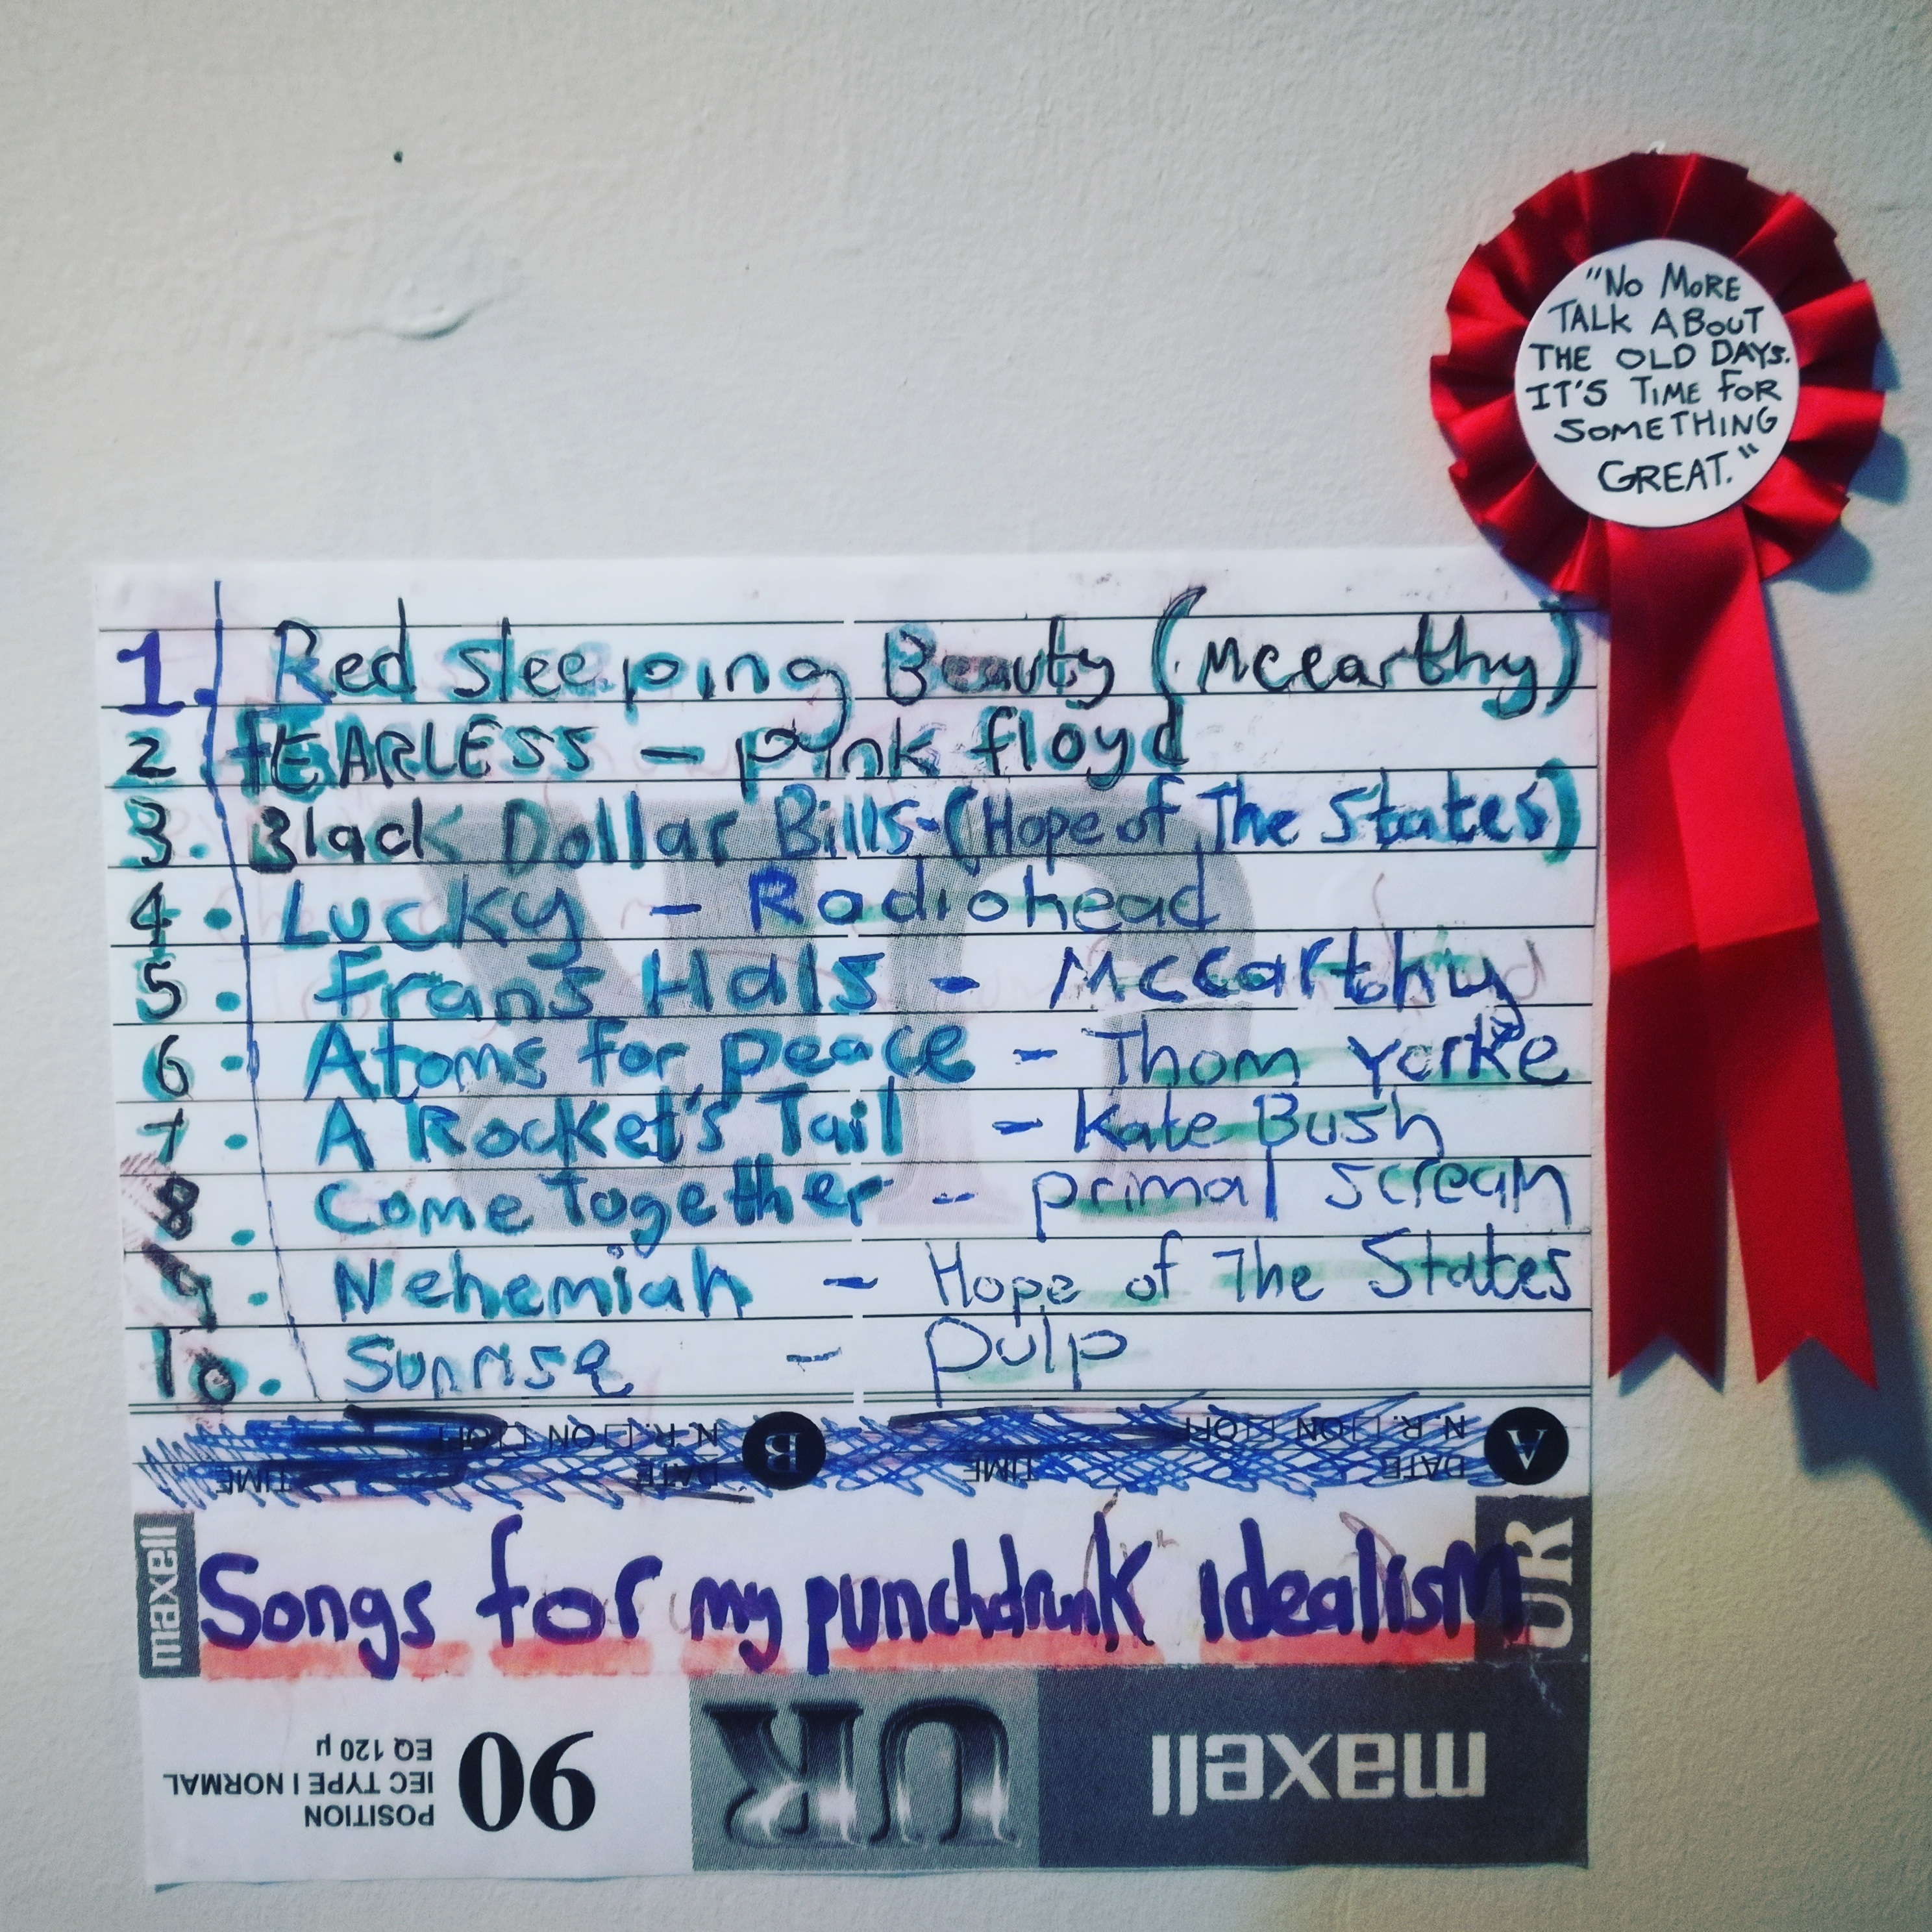 "No MoRE
TALK ABOUT
THE OLD DAYS.
IT'S TIME FOR
SOMETHING
GREAT."
1. Red sleeping Beauty (Mccarthy)
2 fEARLESS - pink floyd
3. Black Dollar Bills-(Hope of The States)
4. Lucky - Radiohead
5. Frans Hals - Mccarthy
6. Atoms for peace - Thom Yorke
7. A Rocket's Tail - Kate Bush
8. Come Together - primal scream
9. Nehemiah - Hope of The States
10. Sunrise - Pulp
N.R. ON OFF B N.R. ON OFF A
TIME DATE TIME DATE
maxell Songs for my punchdrunk idealism UR
maxell UR 90
POSITION
IEC TYPE I NORMAL
EQ 120 µ